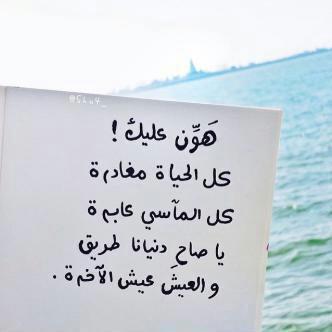 @Shu4_
هَوِّن عليك !
كل الحياة مغادرة
كل المآسي عابرة
يا صاحِ دنيانا طريق
و العيشَ عيش الآخرة .